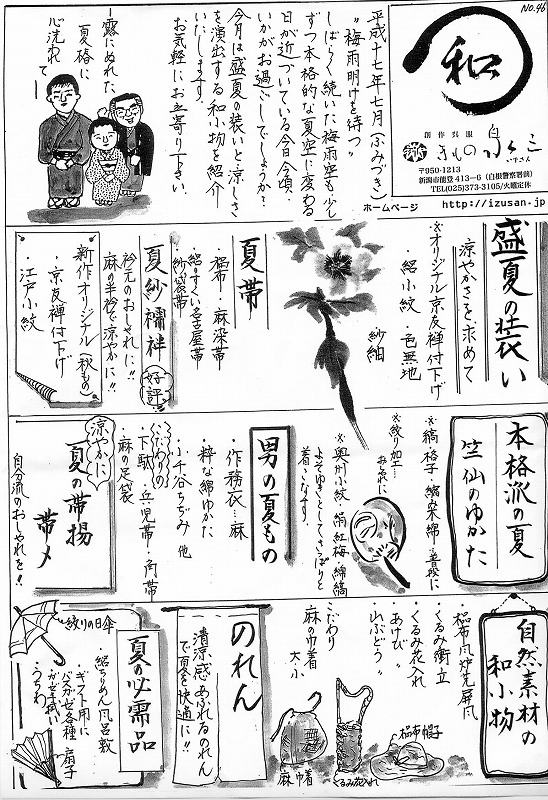 No.46
平成十七年七月(ふみづき)
"梅雨明けを待つ"
しばらく続いた梅雨空も少し
ずつ本格的な夏空に変わる
日が近づいている今日今頃、
いかがお過ごしでしょうか?
今月は盛夏の装いと涼しさ
を演出する和小物を紹介
いたします。
お気軽にお立寄り下さい。
露にぬれた、
夏椿に
心洗われ
て―
和
創作呉服
きもの 泉三
いずさん
〒950-1213
新潟市能登413-6(白根警察署前)
TEL(025)373-3105/火曜定休
ホームページ http://izusan.jp
盛夏の装い
涼やかさを求めて
※オリジナル京友禅付下げ
・絽小紋・色無地
紗紬
夏帯
・福布・麻染帯
・絽・すくい名古屋帯
・紗袋帯
夏紗襦袢
好評
衿元のおしゃれに!!
麻の半衿で涼やかに!!
新作オリジナル(秋もの)
・京友禅付下げ
・江戸小紋
本格派の夏
竺仙のゆかた
※縞格子・綿染綿・普段に
※絞り加工…おしゃれに
※奥州小紋・絹紅梅・綿縞
よそゆきとしてさっぱりと
着こなす。
男の夏もの
・作務衣…麻
・粋な綿ゆかた
・小千谷ちぢみ 他
こだわりの
・下駄・兵児帯・角帯
・麻の足袋
涼やかに
夏の帯揚
帯〆
自分流のおしゃれを!!
自然素材の
和小物
・福布風炉先屏風
・くるみ衝立
・くるみ花入れ
・あけび 〃
・山ぶどう 〃
こだわり
麻の巾着
大小
麻巾着
くるみ花入れ
福布帽子
のれん
清涼感あふれるのれん
で夏を快適に!!
夏の必需品
絽ちりめん風呂敷
・ギフト用に
バスガーゼ各種
ガーゼ手拭い
扇子
うちわ
絞りの日傘